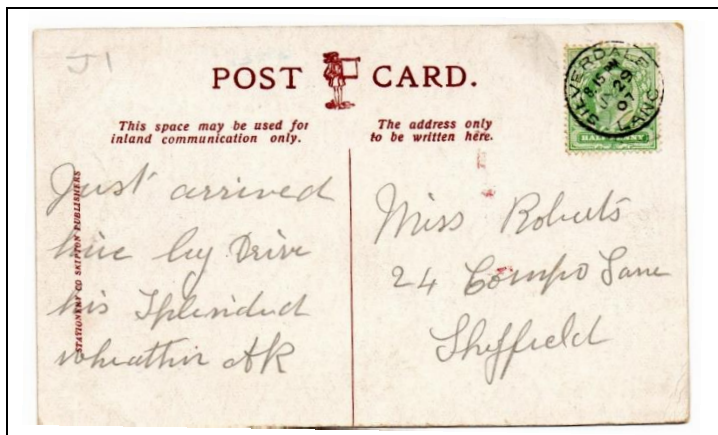 J1
POST CARD.
This space may be used for
inland communication only.
The address only
to be written here.
SILVERDALE
8.15 PM
29
07
LANC
HALFPENNY
STATIONERY CO SKIPTON PUBLISHERS
Just arrived
here by Drive
his Splendid
wheather AR
Miss Roberts
24 Campo Lane
Sheffield